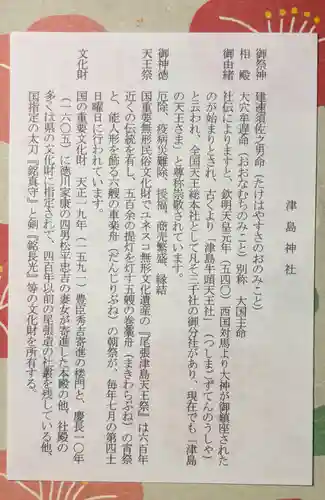 津島神社
御祭神　建速須佐之男命（たけはやすさのおのみこと）
相殿　大穴牟遅命（おおなむちのみこと）別称　大国主命
御由緒　社伝によりますと、欽明天皇元年（五四〇）西国対馬より大神が御鎮座された
のが始まりとされ、古くより「津島牛頭天王社」（つしまごずてんのうしゃ）
と云われ、全国天王総本社として凡そ三千社の御分社があり、現在でも「津島
の天王さま」と尊称崇敬されています。
御神徳　厄除、疫病災難除、授福、商売繁盛、縁結
天王祭　国重要無形民俗文化財でユネスコ無形文化遺産の『尾張津島天王祭』は六百年
近くの伝統を有し、五百余の提灯を灯す五艘の巻藁舟（まきわらぶね）の宵祭
と、能人形を飾る六艘の車楽舟（だんじりぶね）の朝祭が、毎年七月の第四土
日曜日に行われています。
文化財　国の重要文化財、天正一九年（一五九一）豊臣秀吉寄進の楼門と、慶長一〇年
（一六〇五）に徳川家康の四男松平忠吉の妻女が寄進した本殿の他、社殿の
多くは県の文化財に指定されて、四百年以前の尾張造の社叢を残している他、
国指定の太刀『銘真守』と剣『銘長光』等の文化財を所有する。